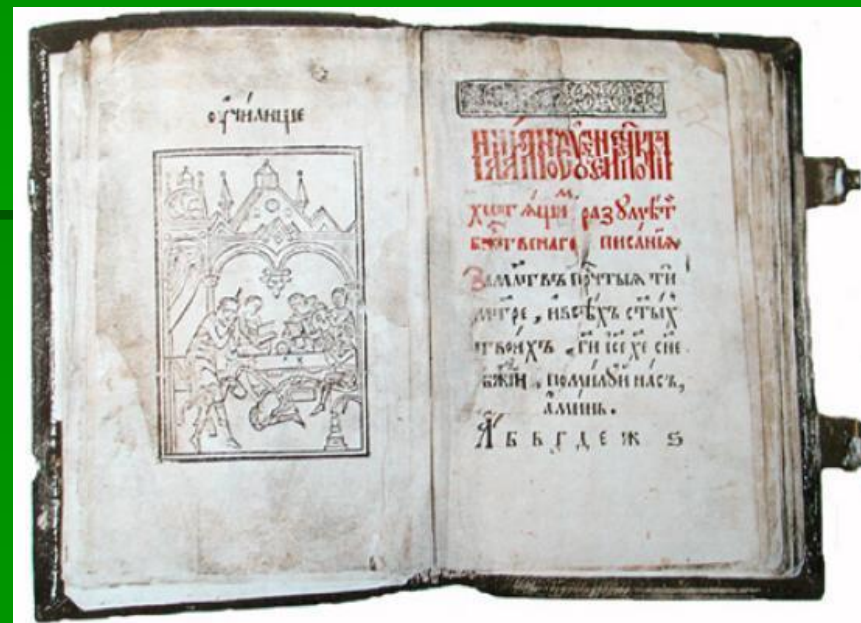 ѹчи́лище
хотѧ́щиⷨ разꙋмѣ́ти
бжⷭ҇твенаго писа́нїѧ
За мл҃твъ прⷱ҇тыѧ ти
мт҃ре, и всѣ́хъ ст҃ы́хъ
твои́хъ, гⷭ҇и іс҃е хе҃ сн҃е
бж҃їй, поми́лꙋй на́съ,
а҆ми́нь.
А҆ б в г д е ж ѕ